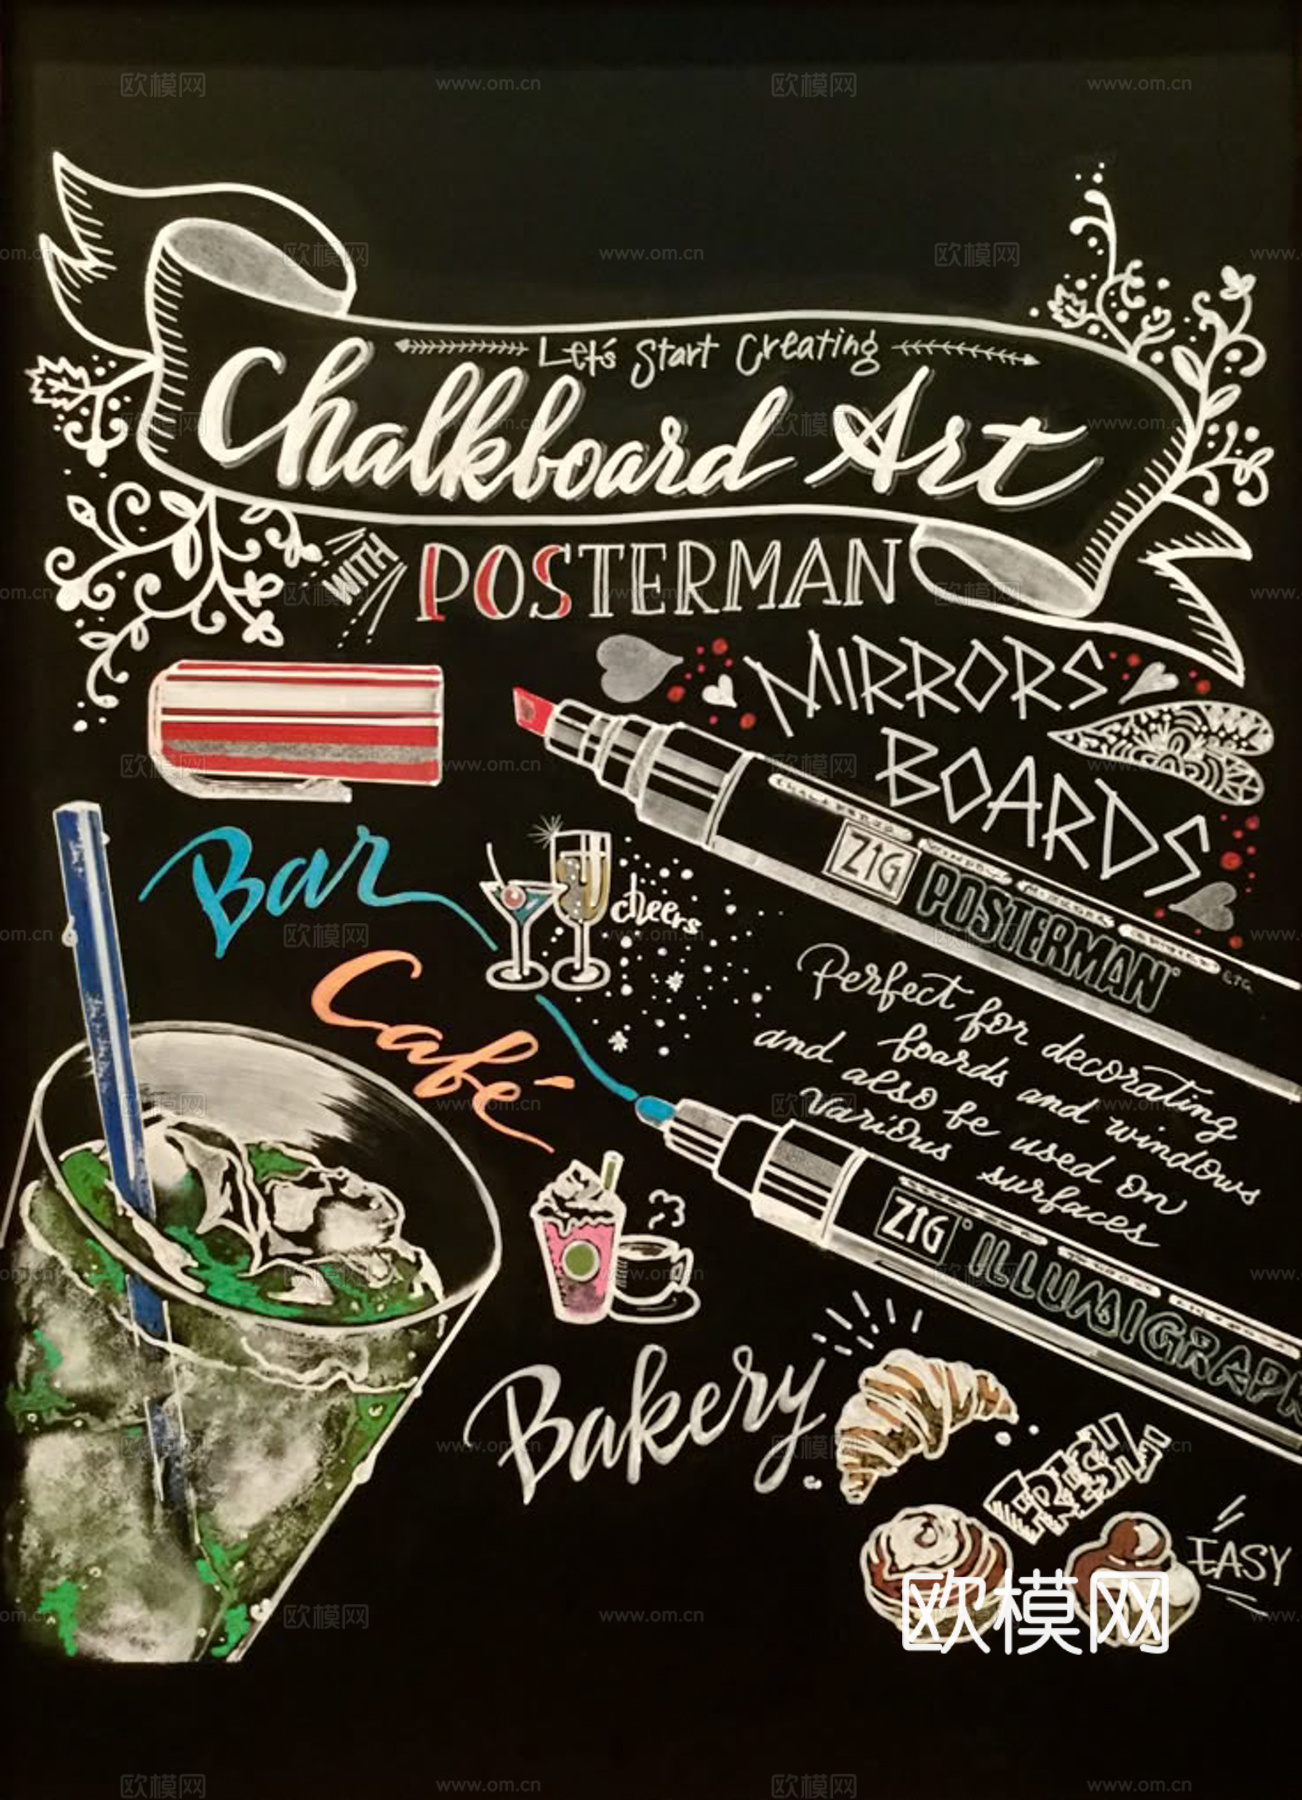 Let's Start Creating
Chalkboard Art
WITH
POSTERMAN
MIRRORS
BOARDS
ZIG
POSTERMAN
ETC.
Bar
cheers
Café
Perfect for decorating
boards and windows
and also be used on
various surfaces
ZIG
ILLUMIGRAPH
Bakery
FRESH
EASY
欧模网
www.om.cn